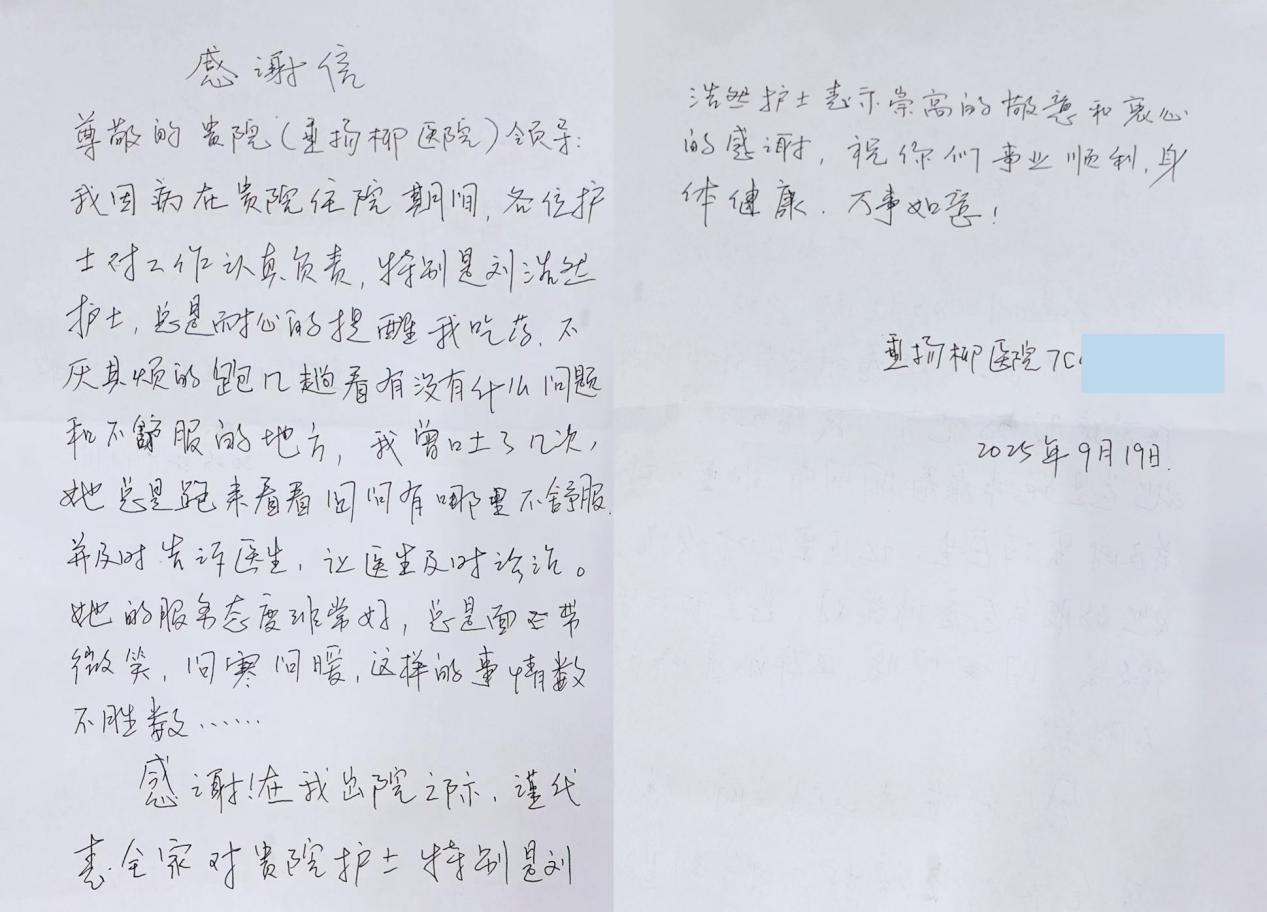 感谢信
尊敬的贵院(垂扬柳医院)领导:
我因病在贵院住院期间,各位护
士对工作认真负责,特别是刘浩然
护士,总是耐心的提醒我吃药,不
厌其烦的跑几趟看有没有什么问题
和不舒服的地方,我曾吐了几次,
她总是跑来看看问问有哪里不舒服.
并及时告诉医生,让医生及时诊治。
她的服务态度非常好,总是面上带
微笑,问寒问暖,这样的事情数
不胜数……
感谢!在我出院之际,谨代
表全家对贵院护士特别是刘
浩然护士表示崇高的敬意和衷心
的感谢,祝你们事业顺利,身
体健康.万事如意!
垂扬柳医院7C
2025年9月19日.